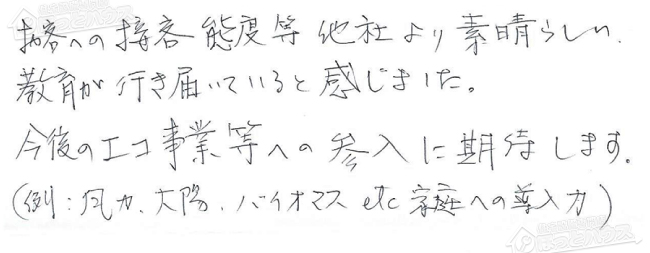 お客への接客態度等他社より素晴らしい.
教育が行き届いていると感じました。
今後のエコ事業等への参入に期待します。
(例:風力、太陽、バイオマス etc 家庭への導入力)